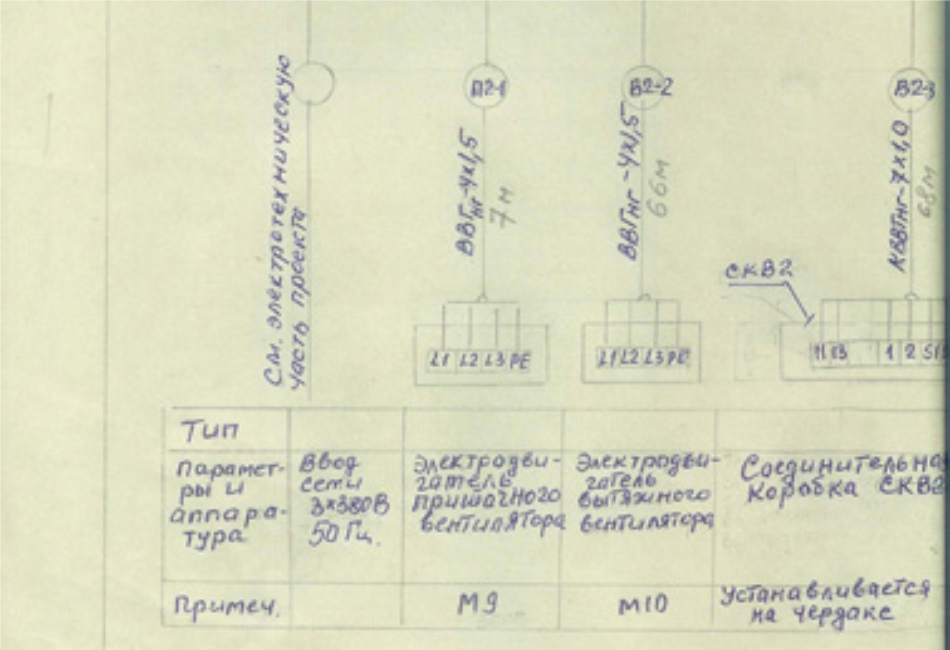 См. электротехническую
часть проекта
П2-1
ВВГнг-4х1,5
7м
В2-2
ВВГнг-4х1,5
66м
В2-3
КВВГнг-7х1,0
68м
СКВ2
L1 L2 L3 PE
L1 L2 L3 PE
1 2
Тип
Парамет-
ры и
аппара-
тура
Ввод
сети
3×380В
50 Гц.
Электродви-
гатель
приточного
вентилятора
Электродви-
гатель
вытяжного
вентилятора
Соединительная
коробка СКВ2
Примеч.
М9
М10
Устанавливается
на чердаке